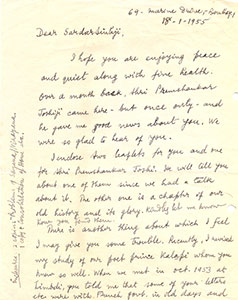 69. Marine Drive, Bombay 1
18-1-1955
Dear Sardarsinhji,
I hope you are enjoying peace
and quiet along with fine health.
Over a month back, Shri Premshankar
Joshiji came here - but once only - and
he gave me good news about you. We
were so glad to hear of you.
I enclose two leaflets for you and one
for Shri Premshankar Joshi. It will tell you
about one of them since we had a talk
about it. The other one is a chapter of our
old history and its glory. Kindly let me know
how you found them.
There is another thing about which I feel
I may give you some trouble. Recently, I revised
my study of our poet prince Kalapi whom you
know so well. When we met in Oct. 1953 at
Limbdi, you told me that some of your letters
etc. were with in old days and